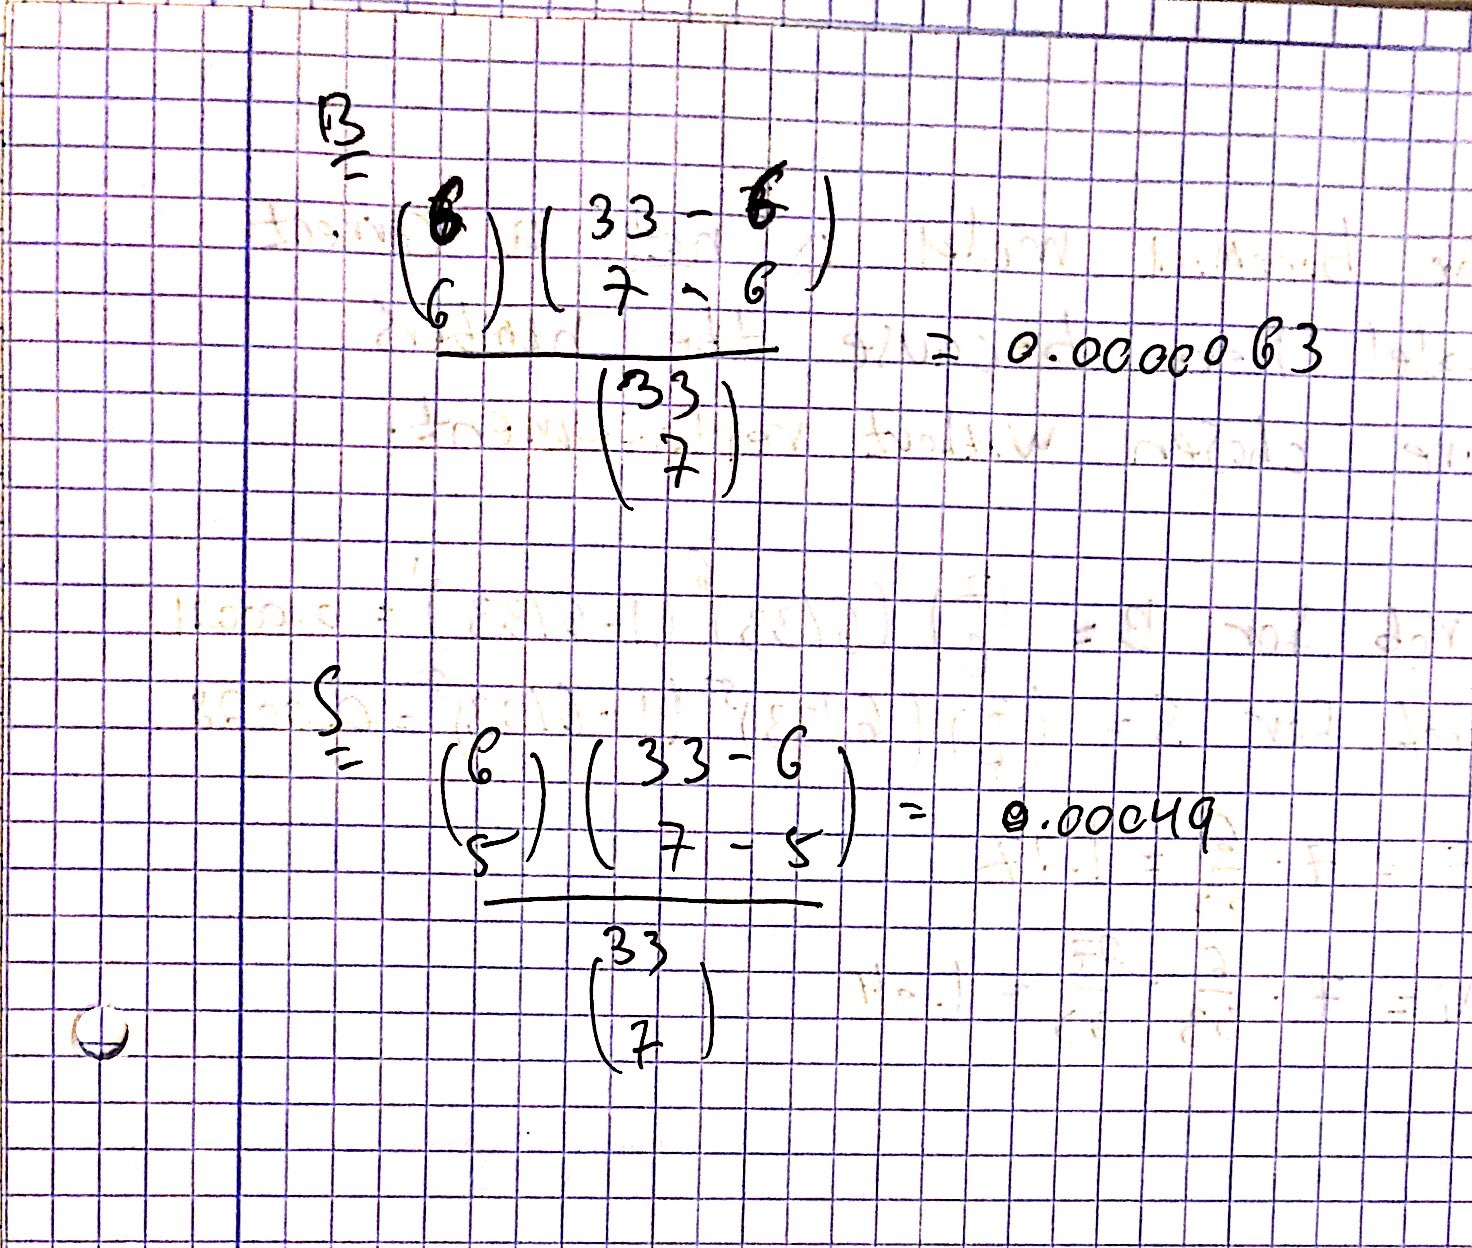 B
(6 6) (33 - 6 7 - 6) / (33 7) = 0.0000063
S
(6 5) (33 - 6 7 - 5) / (33 7) = 0.00049